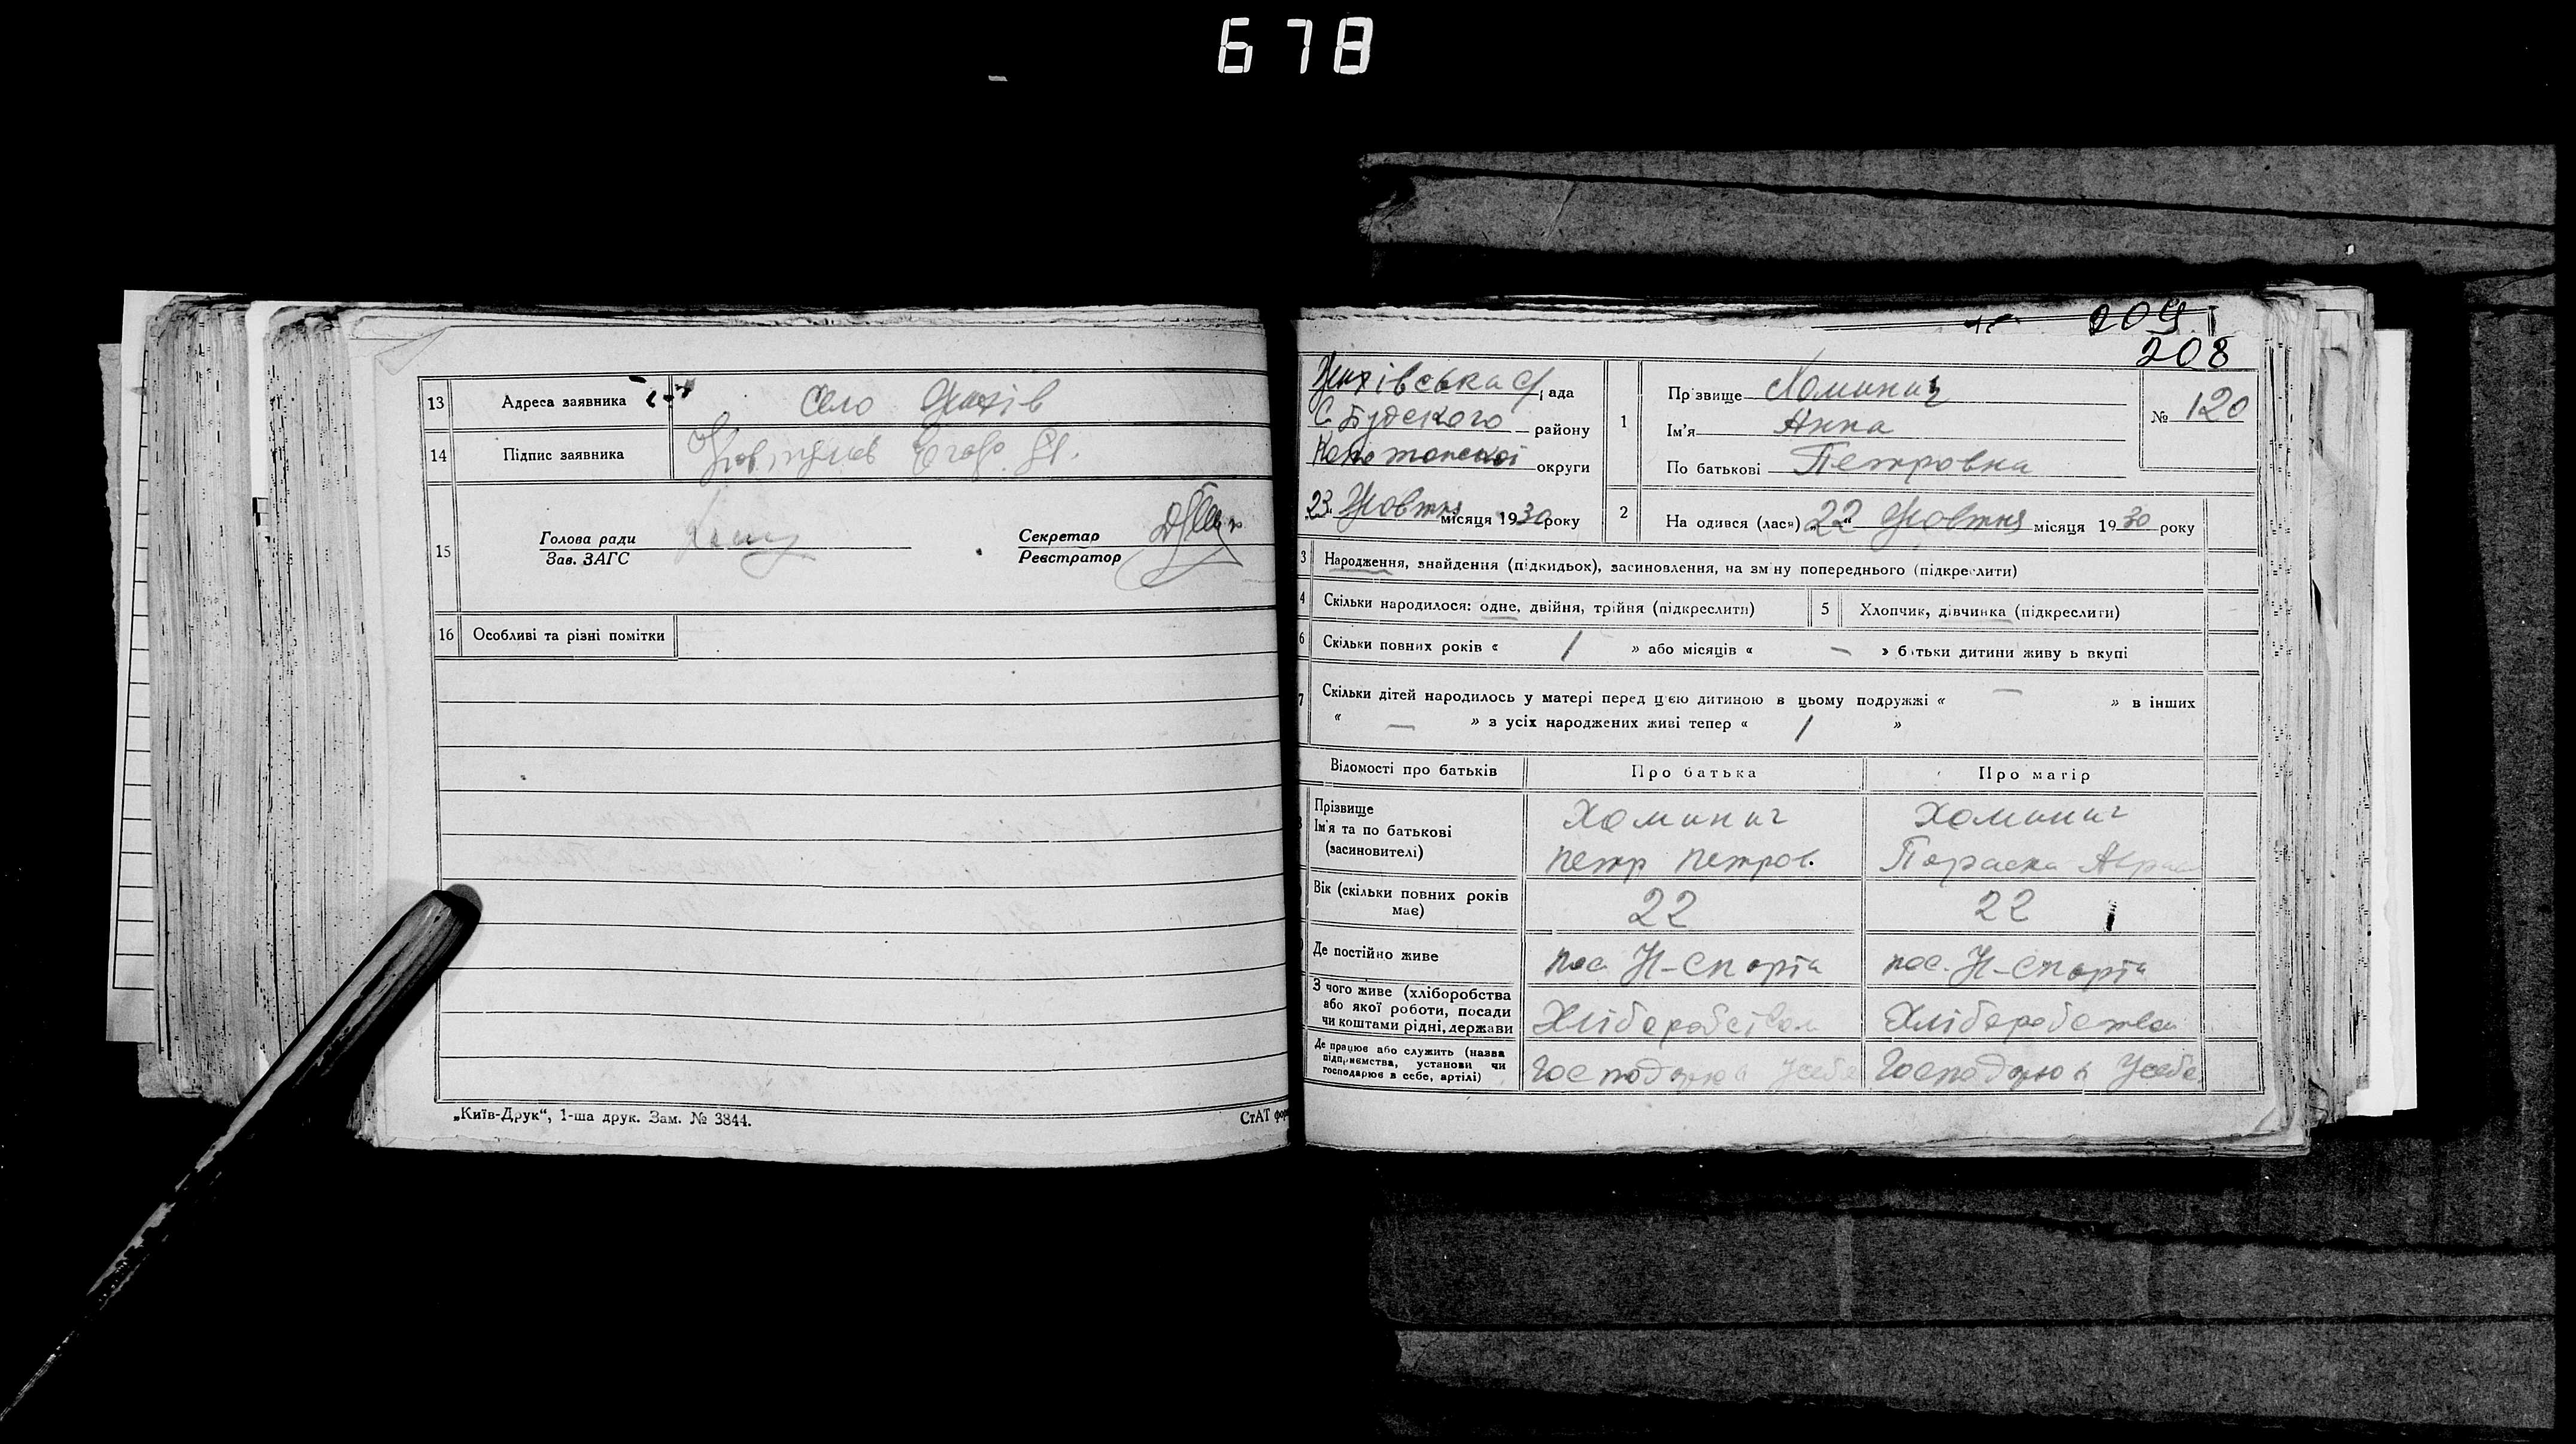 678
13 Адреса заявника село Жихів
14 Підпис заявника
15 Голова ради
Зав. ЗАГС
Секретар
Реєстратор
16 Особливі та різні помітки
„Київ-Друк“, 1-ша друк. Зам. № 3844.
СтАТ фор
209
208
Жихівська с/рада
С. Будского району
Конотопської округи
23 Жовтня місяця 1930 року
1 Прізвище Хоминич
Ім'я Анна
По батькові Петровна
№ 120
2 Народився (лася) „22“ Жовтня місяця 1930 року
3 Народження, знайдення (підкидьок), засиновлення, на зміну попереднього (підкреслити)
4 Скільки народилося: одне, двійня, трійня (підкреслити)
5 Хлопчик, дівчинка (підкреслити)
6 Скільки повних років « 1 » або місяців « — » батьки дитини живуть вкупі
7 Скільки дітей народилось у матері перед цією дитиною в цьому подружжі « — » в інших
« — » з усіх народжених живі тепер « 1 »
Відомості про батьків Про батька Про матір
Прізвище Хоминич Хоминич
Ім'я та по батькові
(засиновителі) Петр Петров. Параска
Вік (скільки повних років має) 22 22
Де постійно живе пос. Н-Спорта пос. Н-Спорта
З чого живе (хліборобства
або якої роботи, посади
чи коштами рідні, держави Хлібаробством Хлібаробством
Де працює або служить (назва
підприємства, установи чи
господарює в себе, артілі) Господарює Усебе Господарює Усебе